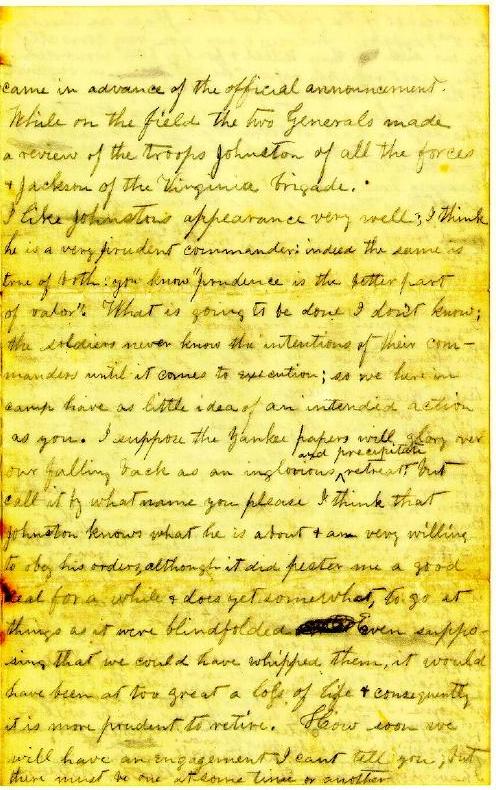 came in advance of the official announcement.
While on the field the two Generals made
a review of the troops Johnston of all the forces
& Jackson of the Virginia brigade.
I like Johnston's appearance very well; I think
he is a very prudent commander: indeed the same is
true of both: you know "prudence is the better part
of valor". What is going to be done I don't know;
the soldiers never know the intentions of their com-
manders until it comes to execution; so we here in
camp have as little idea of an intended action
as you. I suppose the Yankee papers will glory over
and precipitate
our falling back as an inglorious, retreat but
call it by what name you please I think that
Johnston knows what he is about & am very willing
to obey his orders, although it did pester me a good
deal for a while & does yet somewhat, to go at
things as it were blindfolded Even suppo-
sing that we could have whipped them, it would
have been at too great a loss of life & consequently
it is more prudent to retire. How soon we
will have an engagement I cant tell you, but
there must be one at some time or another